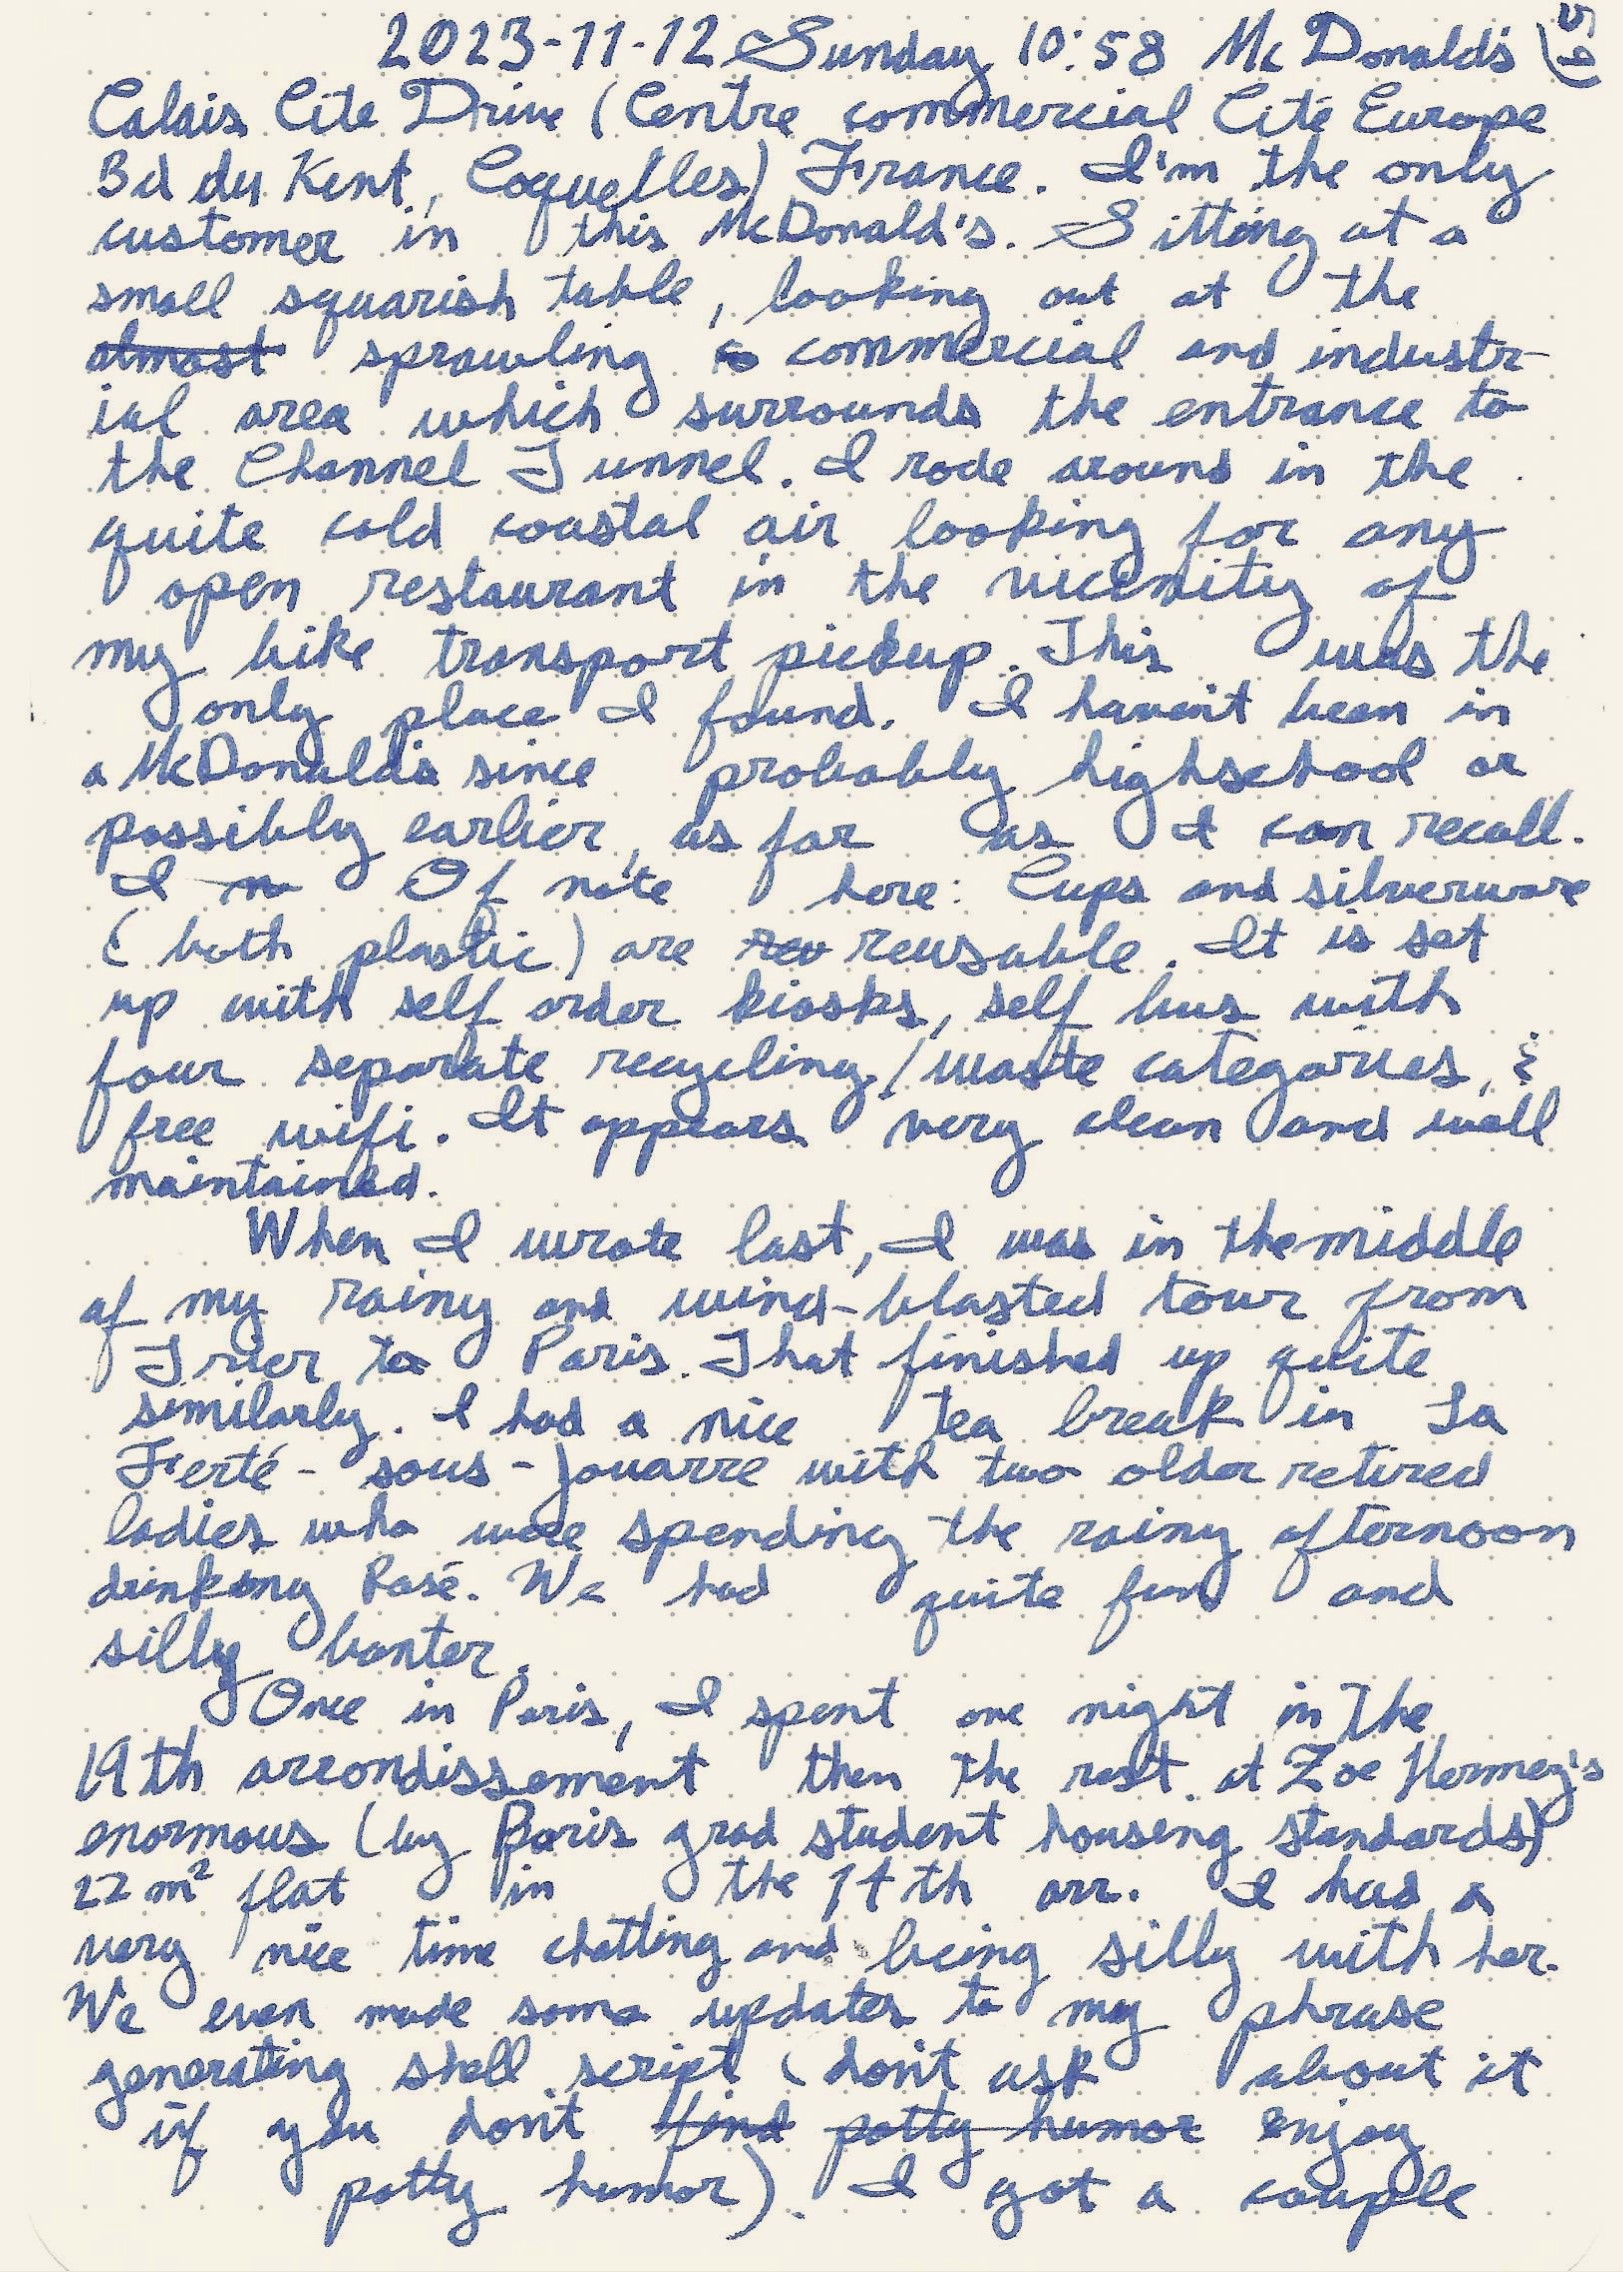 2023-11-12 Sunday 10:58 McDonald's
Calais Cite Drive (Centre commercial Cité Europe
Bd du Kent, Coquelles) France. I'm the only
customer in this McDonald's. Sitting at a
small squarish table, looking out at the
almost sprawling commercial and industr-
ial area which surrounds the entrance to
the Channel Tunnel. I rode around in the
quite cold coastal air looking for any
open restaurant in the vicinity of
my bike transport pickup. This was the
only place I found. I haven't been in
a McDonald's since probably highschool or
possibly earlier, as far as I can recall.
I n Of note here: Cups and silverware
(both plastic) are rev reusable. It is set
up with self order kiosks, self bus with
four separate recycling/waste categories, &
free wifi. It appears very clean and well
maintained.
When I wrote last, I was in the middle
of my rainy and wind-blasted tour from
Trier to Paris. That finished up quite
similarly. I had a nice tea break in La
Ferté-sous-Jouarre with two older retired
ladies who were spending the rainy afternoon
drinking Rosé. We had quite fun and
silly banter.
Once in Paris, I spent one night in the
19th arrondissement then the rest at Zoe Hermez's
enormous (by Paris grad student housing standards)
22 m² flat in the 14th arr. I had a
very nice time chatting and being silly with her.
We even made some updates to my phrase
generating shell script (don't ask about it
if you don't find potty humor enjoy
potty humor). I got a couple